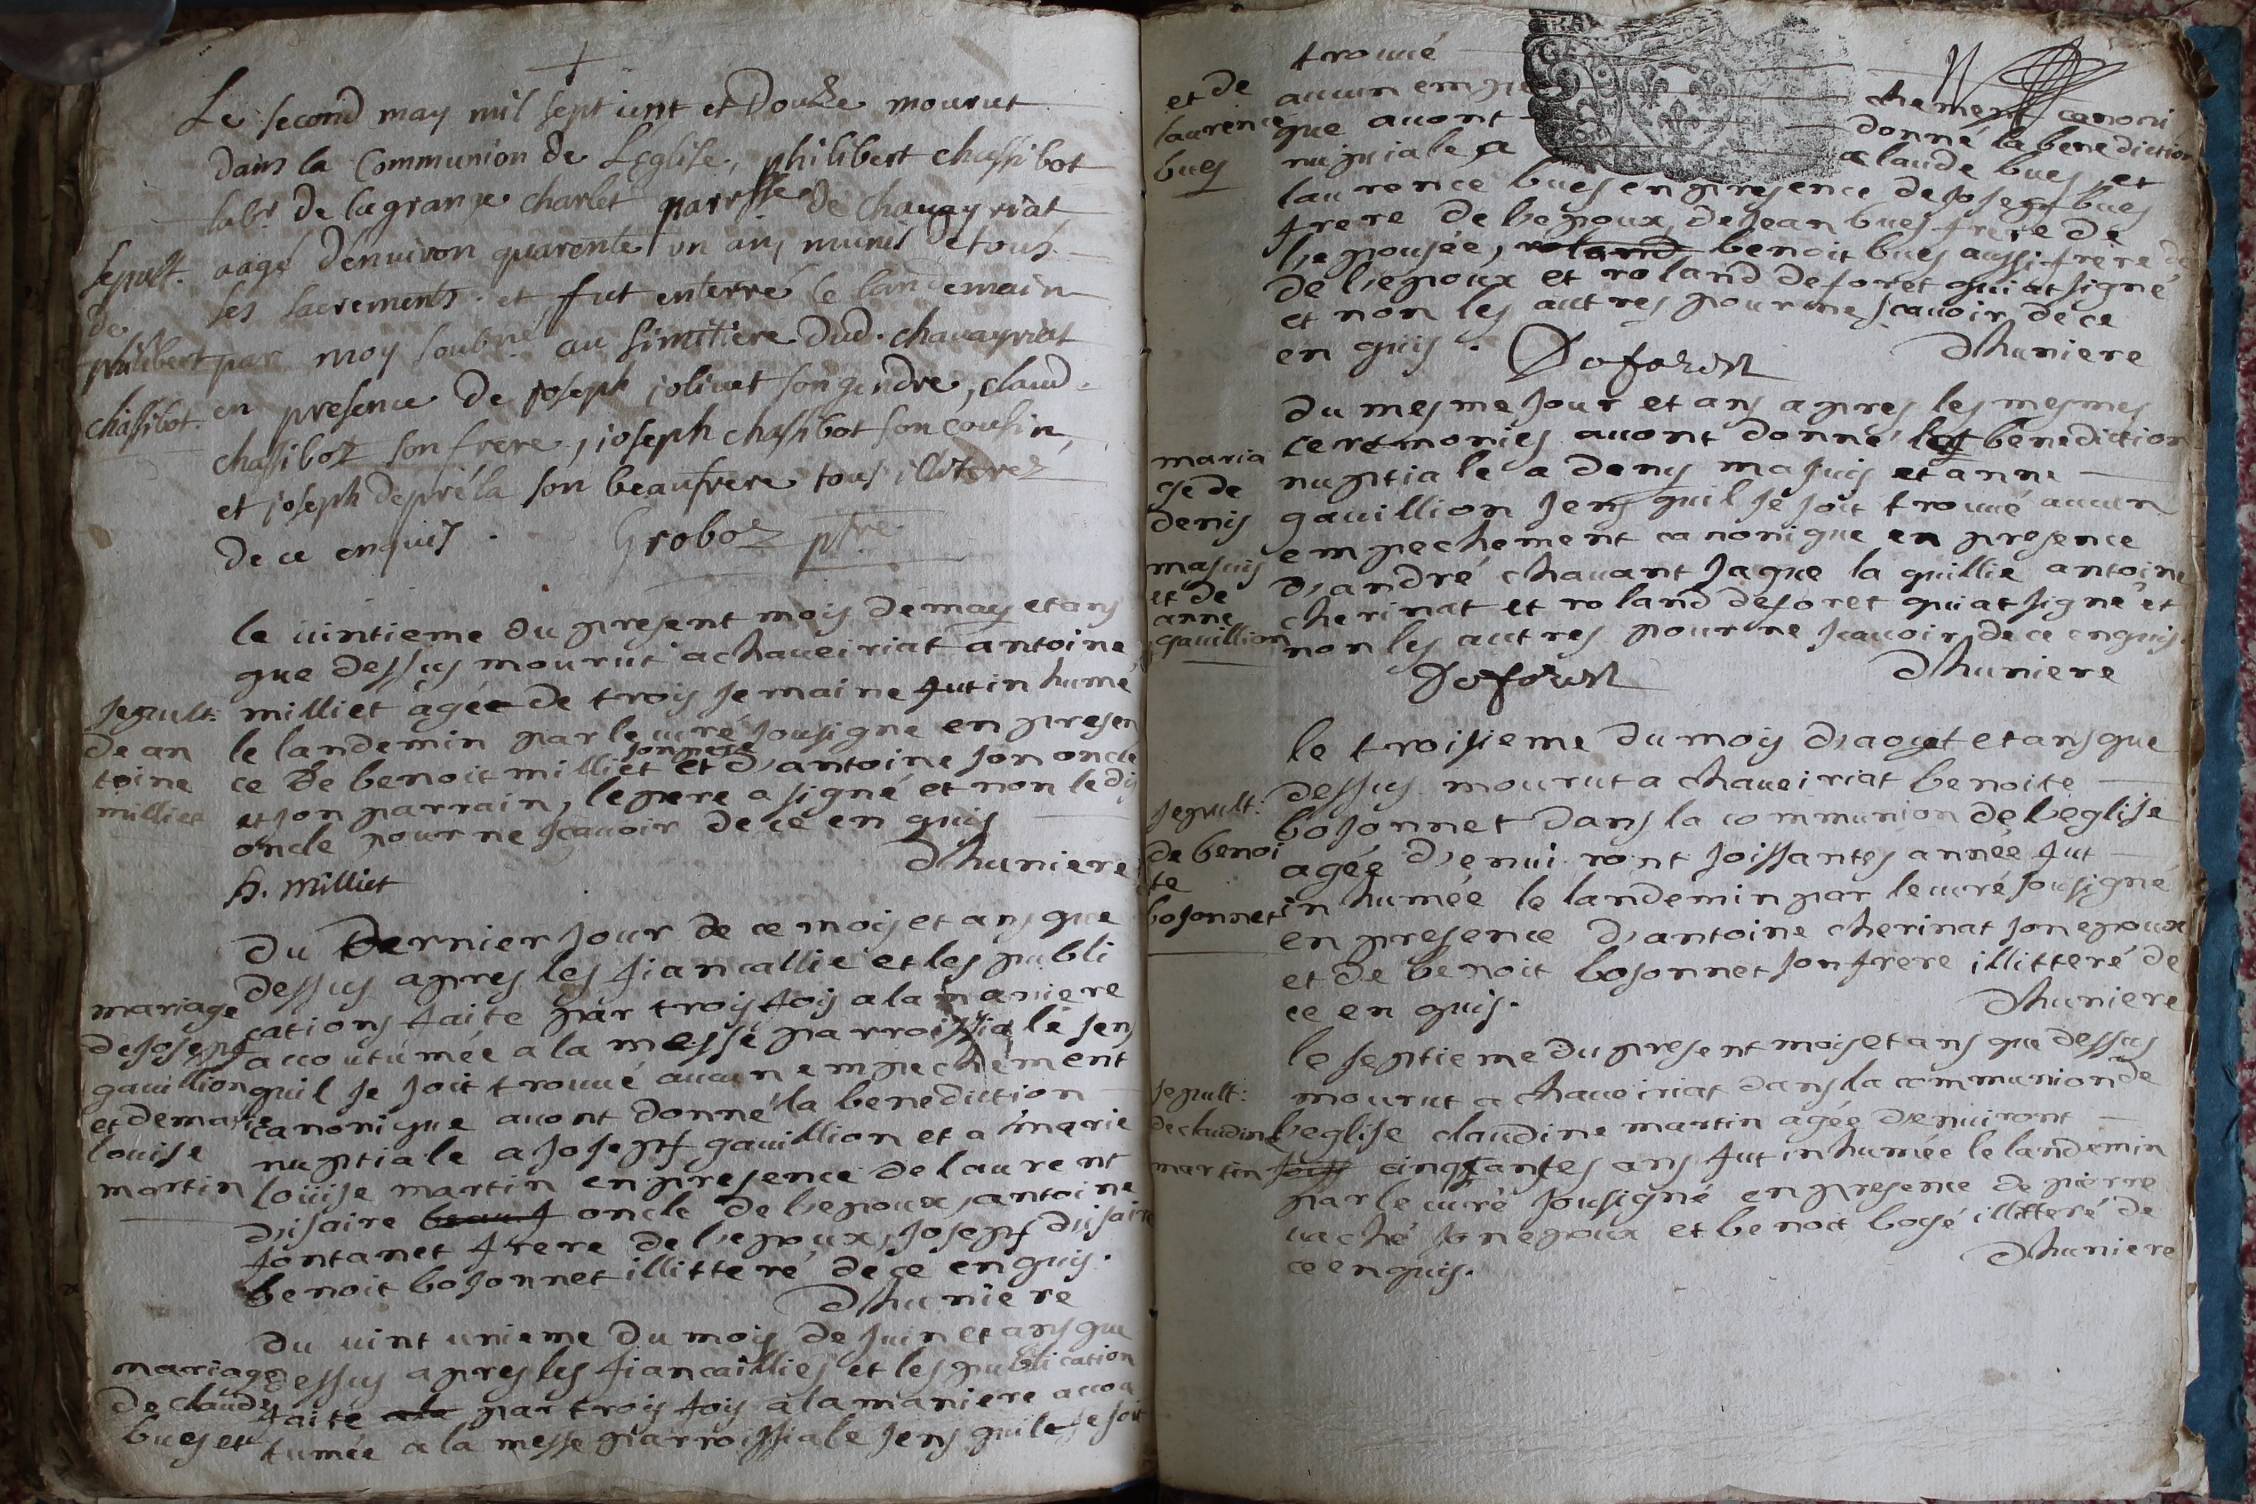 Le second may mil sept cent et douze mourut
dans la Communion de Leglise, philibert chassibot
labr. de lagrange charlet parrsse de chavayriat
Sepult. aagé d'enuiron quarente un ans munis de tous
de
les sacrements. et fut enterré le landemain
philibert par moy soubné. au simitiere dud. chavayriat
chassibot. en presence de joseph joliuet son gendre, claud.
chassibot son frere, joseph chassibot son cousin,
et joseph depréla son beaufrere tous illiterez
de ce enquis. Groboz ptre.
le uintieme du present mois de may et ans
que dessus mourut a chaueiriat antoine
Sepult: milliet agée de trois semaine fut in humé
de an le landemin par le curé sousigne en presen
toine ce de benoit milliet son pere et d'antoine son oncle
milliet et son parrain, le pere a signé et non le dis
oncle pour ne scauoir de ce en quis
dhuniere
B. Milliet
Du Dernier jour de ce mois et ans que
dessus apres les fiancallie et les publi
mariage cations faite par trois fois a la maniere
de josepf accoutumée a la messe parroissiale sens
gauillion quil se soit trouué aucun empechement
et de marie canonique auont donné la benediction
louise nuptiale a josepf gauillion et a marie
martin loüise martin en presence de laurent
disaire beau f oncle de l'epoux, antoine
fontanet frere de l'epoux, josepf disaire
benoit bosonnet illitteré de ce en quis.
dhuniere
du uint unieme du mois de juin et ans que
mariage dessus apres les fiancailliés et les publication
de claude faite ala par trois fois a la maniere accou
bues et tumée a la messe parroissiale sens quil se soit
trouué
et de aucun empe chement canoni
laurence que auont donné la benediction
bues nuptiale a claude bues et
laurence bues en presence de josepf bues
frere de l'epoux, de jean bues frere de
l'epousée, roland benoit bues aussi frere de
de l'epoux et roland deforet qui at signé
et non les autres pour ne scauoir de ce
en quis. Deforest dhuniere
du mesme jour et ans apres les mesmes
ceremonies auont donné la benediction
maria nuptiale a denis masuis et anne
ge de gauillion sens quil se soit trouué aucun
denis empechement canonique en presence
masuis d'andré chauant jaque la quillie antoine
et de cherinat et roland deforet qui at signé et
anne
gauillion non les autres pour ne scauoir de ce enquis.
Deforest dhuniere
le troisieme du mois d'aout et ans que
dessus mourut a chaueiriat benoite
Sepult: bosonnet dans la communion de l'eglise
de benoi agée d'enuiront soissantes année fut
te in humée le landemin par le curé sousigné
bosonnet en presence d'antoine cherinat son epoux
et de benoit bosonnet son frere illitteré de
ce en quis. dhuniere
le septieme du present mois et ans que dessus
Sepult: mourut a chaueiriat dans la communion de
de claudine l'eglise claudine martin agée d'enuiront
martin soiss cinqantes ans fut inhumée le landemin
par le curé sousigné en presence de pierre
uaché son epoux et benoit bosé illitteré de
ce en quis. dhuniere